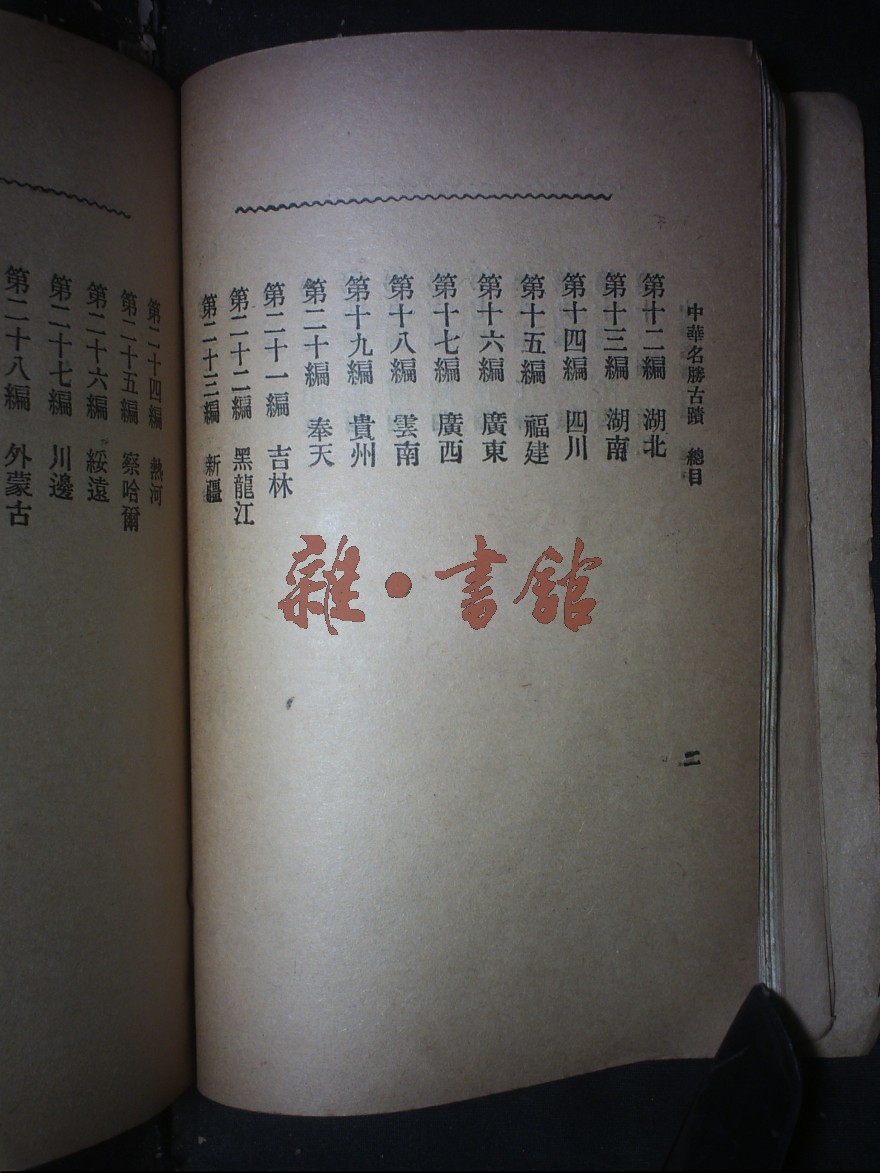 中華名勝古蹟 總目
二
第十二編 湖北
第十三編 湖南
第十四編 四川
第十五編 福建
第十六編 廣東
第十七編 廣西
第十八編 雲南
第十九編 貴州
第二十編 奉天
第二十一編 吉林
第二十二編 黑龍江
第二十三編 新疆
第二十四編 熱河
第二十五編 察哈爾
第二十六編 綏遠
第二十七編 川邊
第二十八編 外蒙古
雜·書館